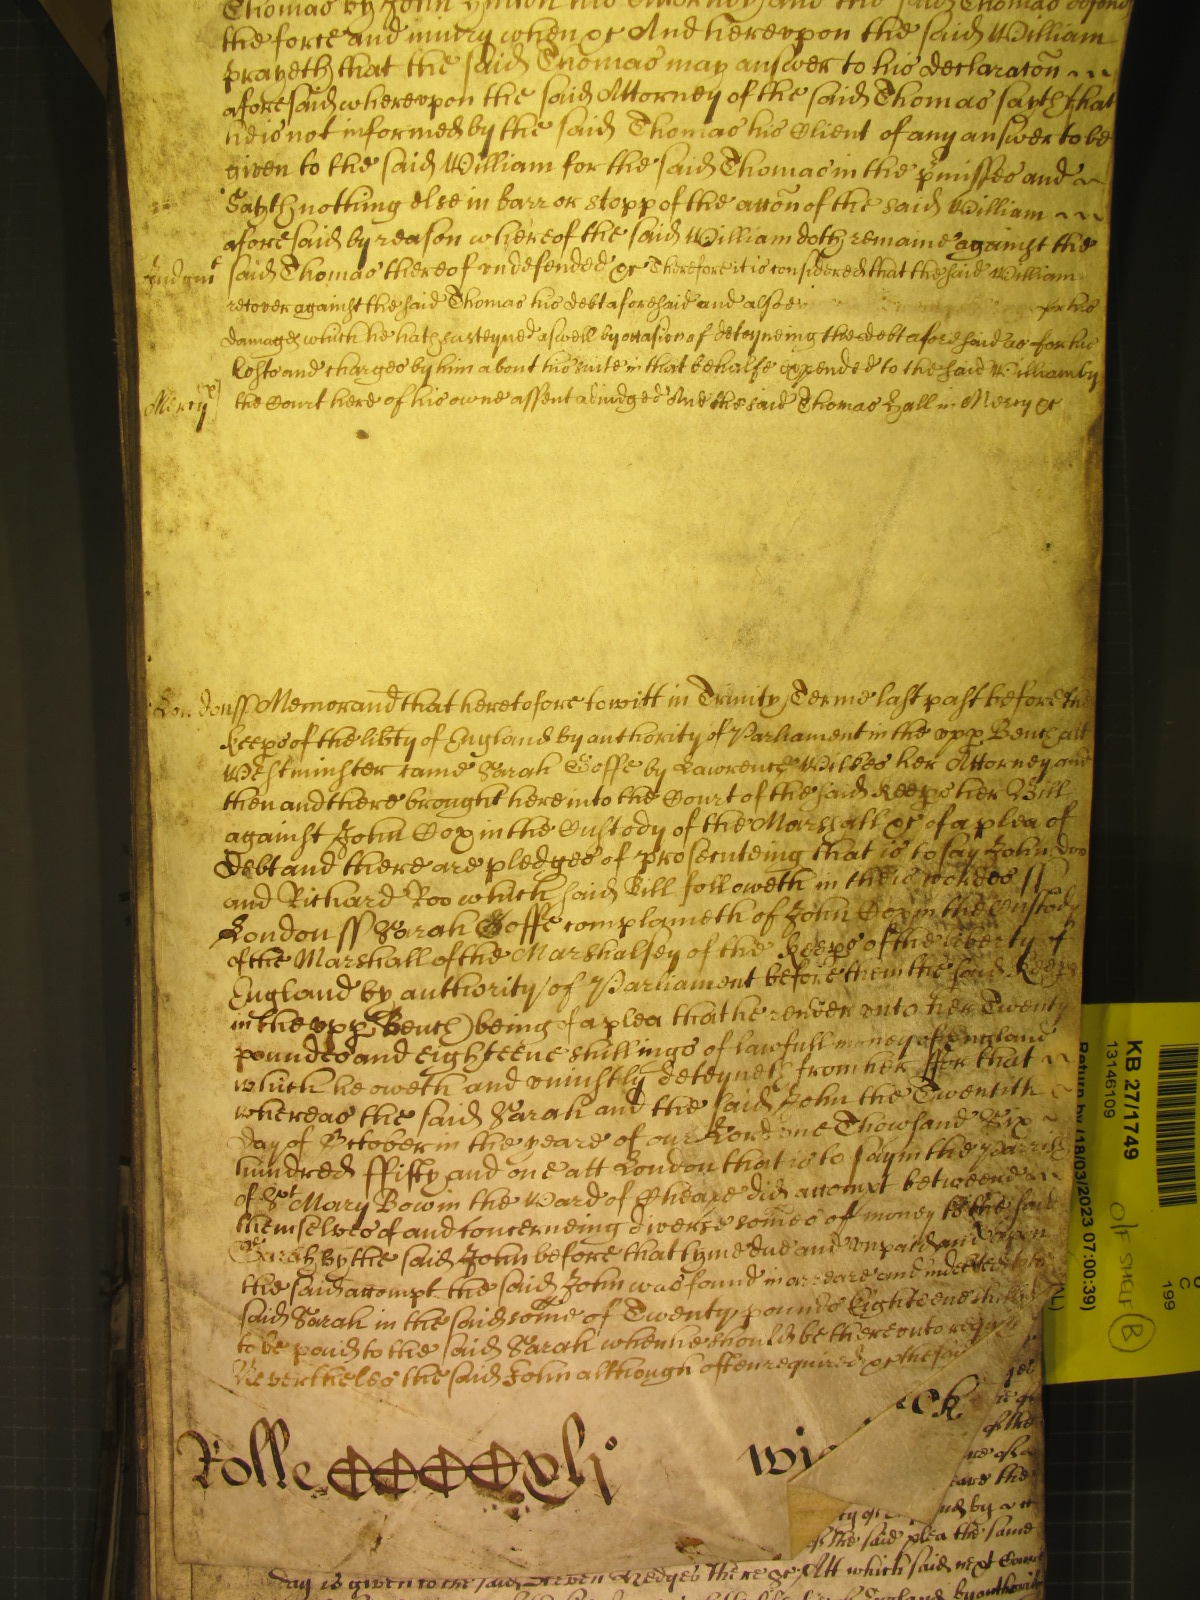 Thomas by John his Attorney and the said Thomas
the force and iniury when &c And herevpon the said William
prayeth that the said Thomas may answer to his declaracon
aforesaid wherevpon the said Attorney of the said Thomas sayth that
he is not informed by the said Thomas his Client of any answer to be
given to the said William for the said Thomas in the pmisses and
Sayth nothing else in barr or stopp of the accon of the said William
aforesaid by reason whereof the said William doth remaine against the
Judgmt said Thomas thereof vndefended &c Therefore it is considered that the said William
recover against the said Thomas his debt aforesaid and alsoe for his
damages which he hath susteyned aswell by occasion of deteyneing the debt aforesaid as for his
Costs and charges by him about his suite in that behalfe expended to the said William by
Mercy the Court here of his owne assent adiudged And the said Thomas Hall in Mercy &c
London ss Memorand that heretofore to witt in Trinity Terme last past before the
keeps of the libty of England by authority of Parliament in the vpp Bench att
Westminster came Sarah Goffe by Lawrence Wilkes her Attorney and
then and there brought here into the Court of the said keeps her Bill
against John Cox in the Custody of the Marshall &c of a plea of
debt and there are pledges of prosecuteing that is to say John doo
and Richard Roo which said Bill followeth in theis wordes ss
London ss Sarah Goffe complaineth of John Cox in the Custody
of the Marshall of the Marshalsey of the keeps of the liberty of
England by authority of Parliament before them the said keeps
in the vpp Bench being of a plea that he render vnto her Twenty
poundes and Eighteene shillings of lawfull money of England
which he oweth and vniustly deteyneth from her ffor that
whereas the said Sarah and the said John the Twentith
day of October in the yeare of our Lord one Thowsand Six
hundred ffifty and one att London that is to say in the Parrish
of St Mary Bow in the Ward of Cheape did accompt betweene
themselves of and concerneing diverse somes of money to the said
Sarah by the said John before that tyme due and vnpaid and vpon
the said accompt the said John was found in arreare and indebted to the
said Sarah in the said some of Twenty pounds Eighteene shillings
to be paid to the said Sarah when he should be therevnto
Neverthelesse the said John although often required &c the
Rolle CCCCxlj° wi
of the
the
by
of the said plea the same
day is given to the said there &c Att which said next
England by authority
KB 27/1749
13146109
Return by (18/03/2023 07:00:39)
Off Shelf B
C
199